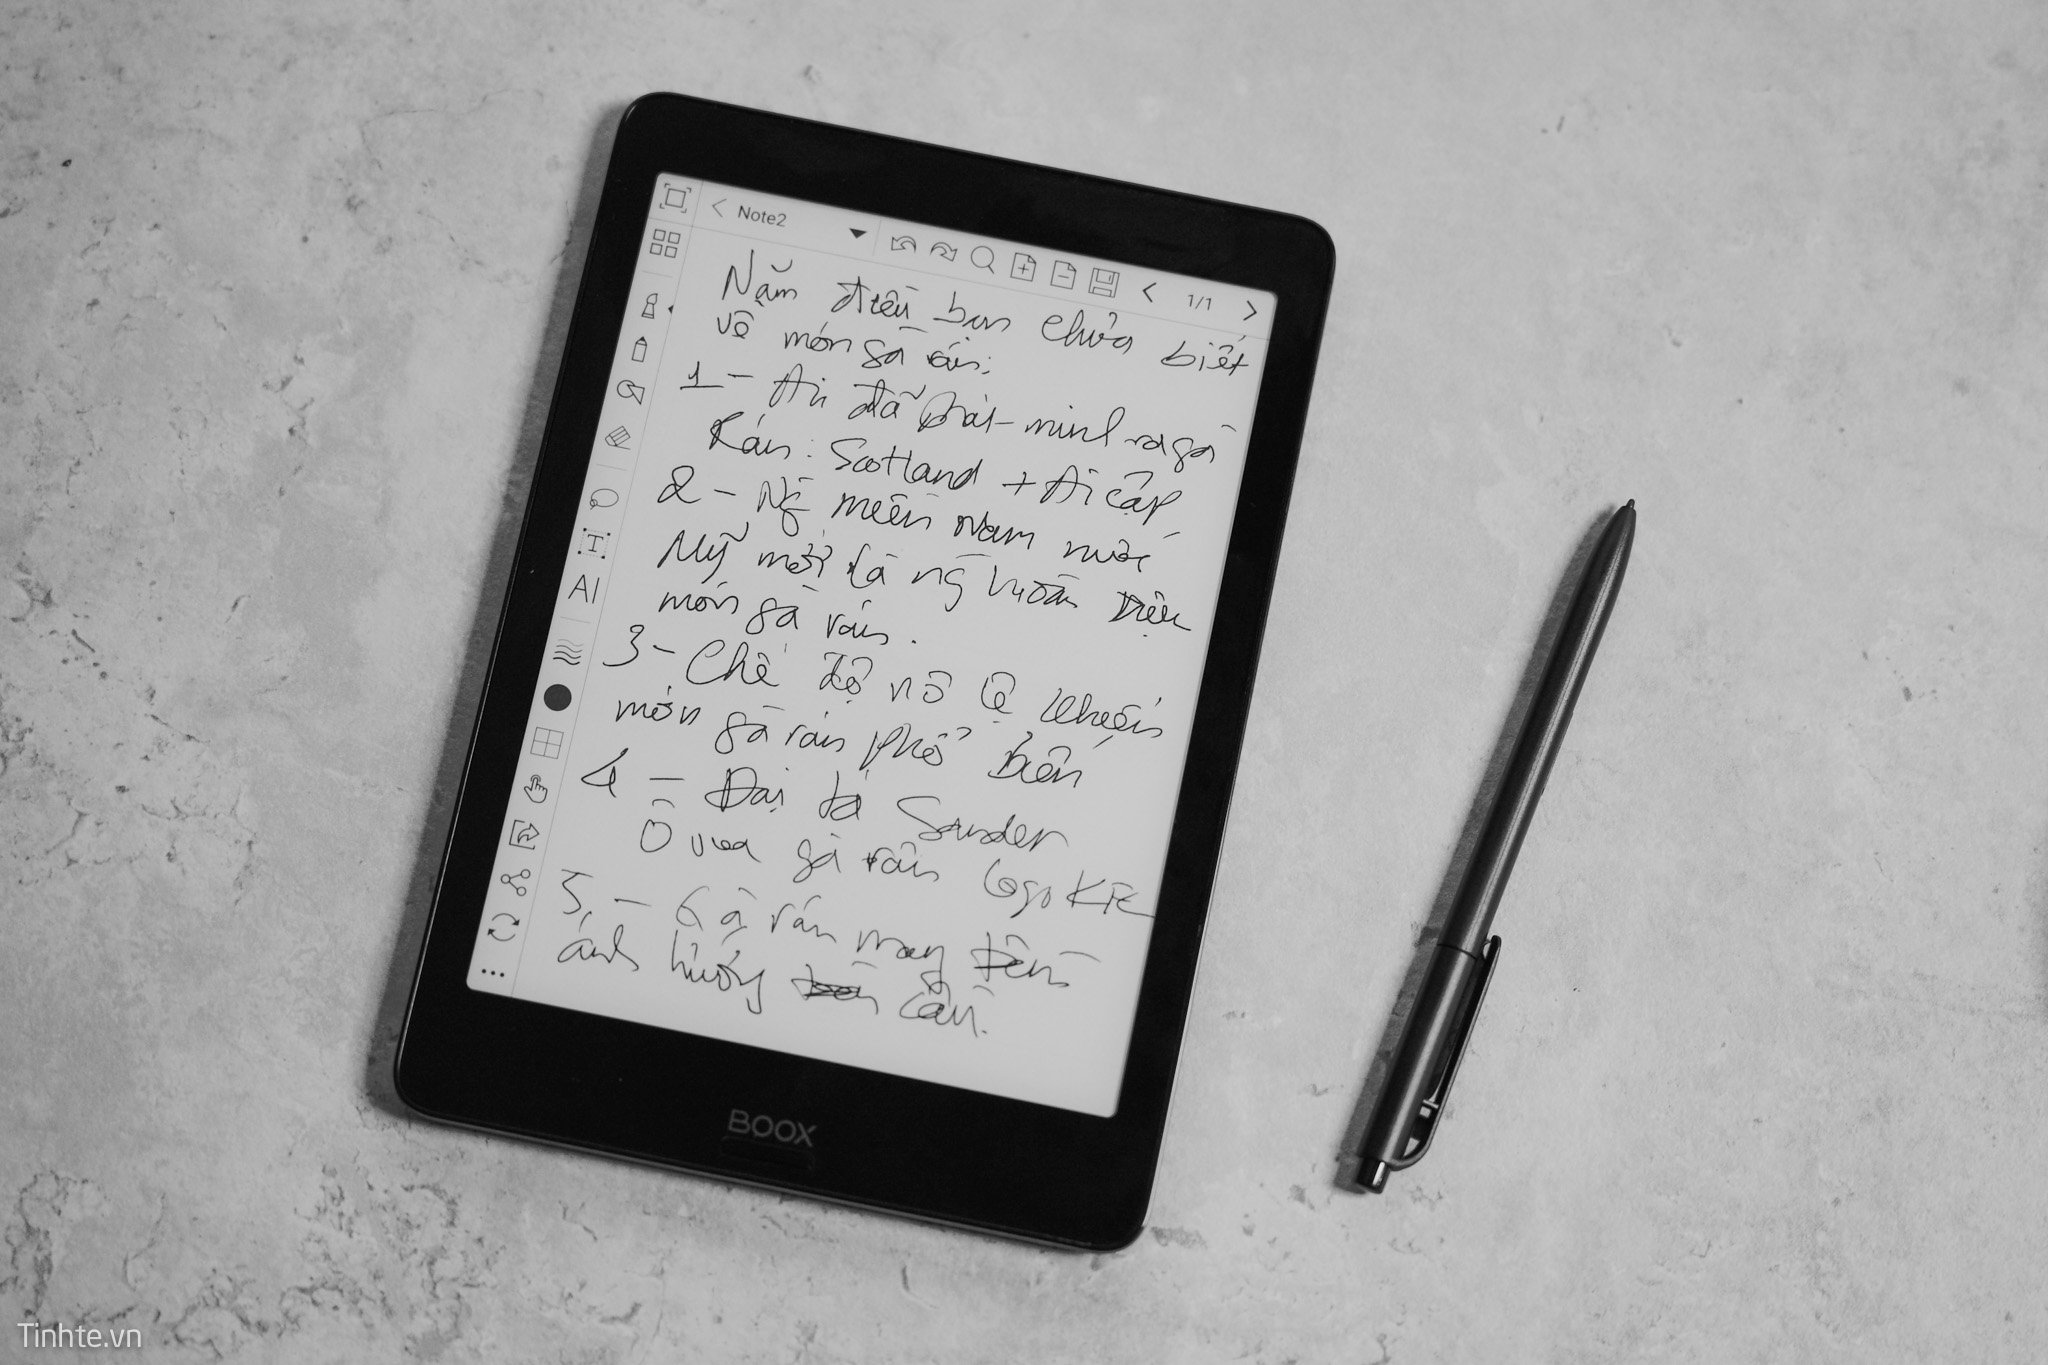 Note2
1/1
Năm điều bạn chưa biết
về món gà rán:
1- Ai đã phát minh ra gà
Rán: Scotland + Ai cập
2 - Ng miền Nam nước
Mỹ mới là ng hoàn thiện
món gà rán.
3- Chế độ nô lệ khiến
món gà rán phổ biến
4 - Đại tá Sander
Ô vua gà rán logo KFC
5, - Gà rán mang tên
ảnh hưởng
AI
BOOX
Tinhte.vn